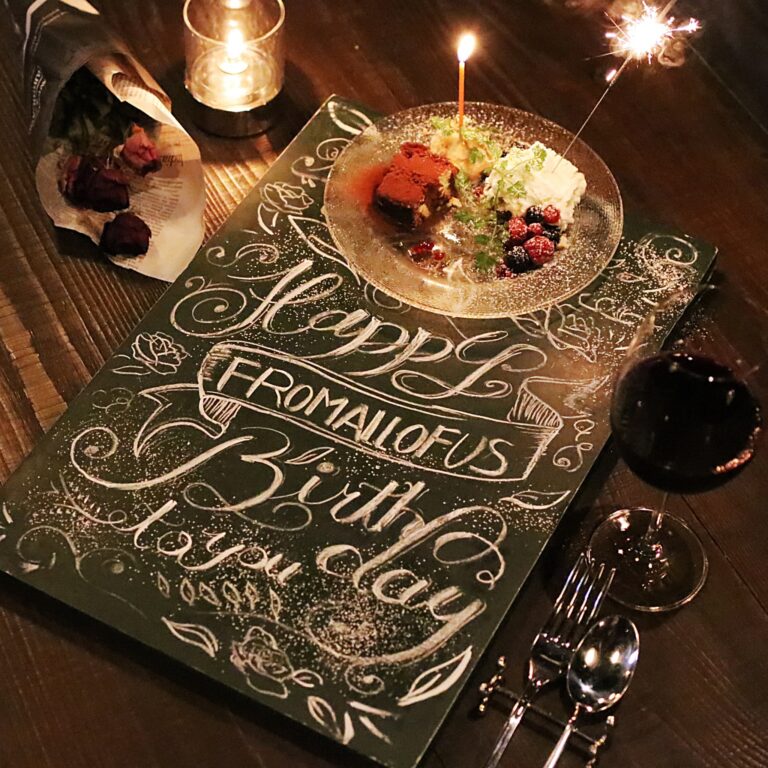 Happy
FROM ALL OF US
Birthday
to you